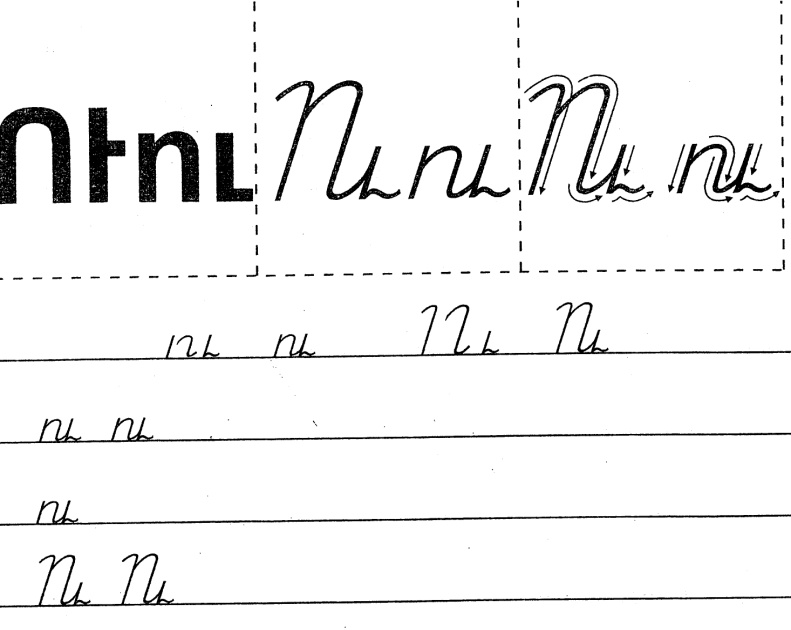 ՈՒու Ու ու Ու ու
ու ու Ու Ու
ու ու
ու
Ու Ու